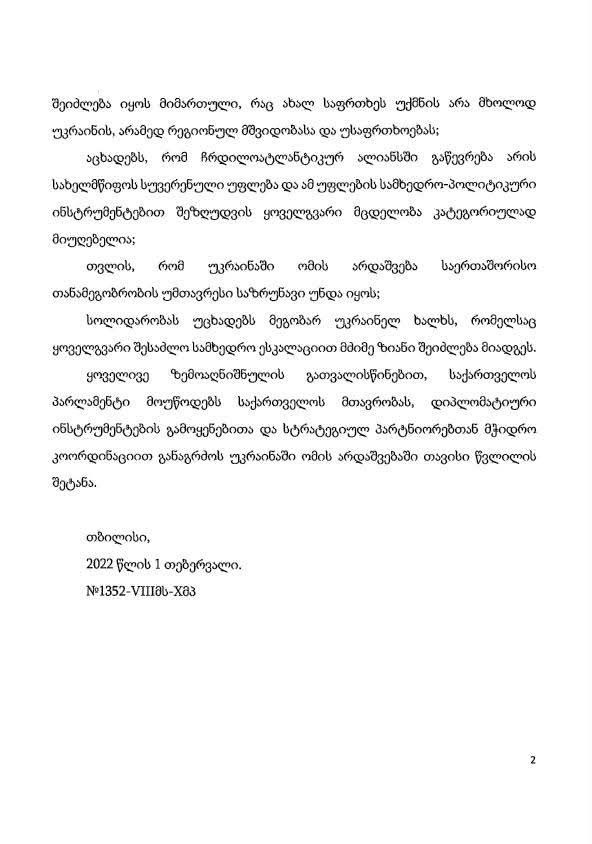 შეიძლება იყოს მიმართული, რაც ახალ საფრთხეს უქმნის არა მხოლოდ
უკრაინის, არამედ რეგიონულ მშვიდობასა და უსაფრთხოებას;
აცხადებს, რომ ჩრდილოატლანტიკურ ალიანსში გაწევრება არის
სახელმწიფოს სუვერენული უფლება და ამ უფლების სამხედრო-პოლიტიკური
ინსტრუმენტებით შეზღუდვის ყოველგვარი მცდელობა კატეგორიულად
მიუღებელია;
თვლის, რომ უკრაინაში ომის არდაშვება საერთაშორისო
თანამეგობრობის უმთავრესი საზრუნავი უნდა იყოს;
სოლიდარობას უცხადებს მეგობარ უკრაინელ ხალხს, რომელსაც
ყოველგვარი შესაძლო სამხედრო ესკალაციით მძიმე ზიანი შეიძლება მიადგეს.
ყოველივე ზემოაღნიშნულის გათვალისწინებით, საქართველოს
პარლამენტი მოუწოდებს საქართველოს მთავრობას, დიპლომატიური
ინსტრუმენტების გამოყენებითა და სტრატეგიულ პარტნიორებთან მჭიდრო
კოორდინაციით განაგრძოს უკრაინაში ომის არდაშვებაში თავისი წვლილის
შეტანა.
თბილისი,
2022 წლის 1 თებერვალი.
№1352-VIIIმს-Xმპ
2